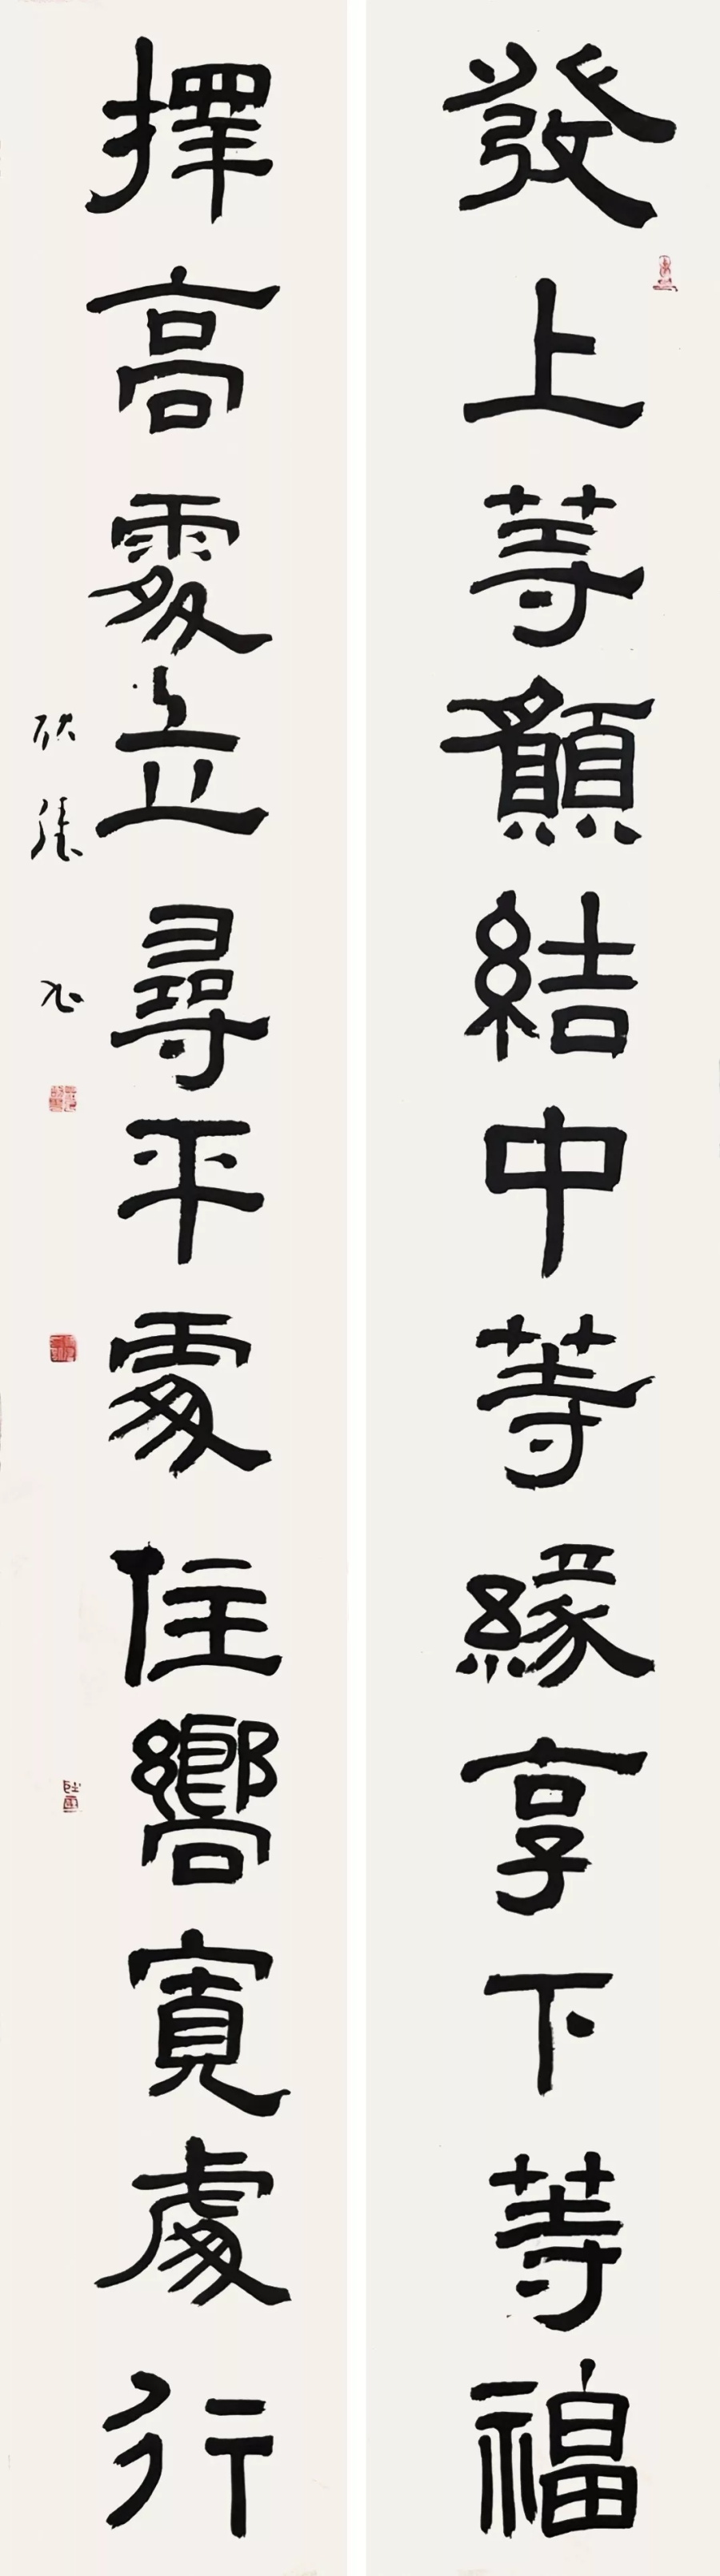 發上等願結中等緣享下等福
擇高處立尋平處住嚮寬處行